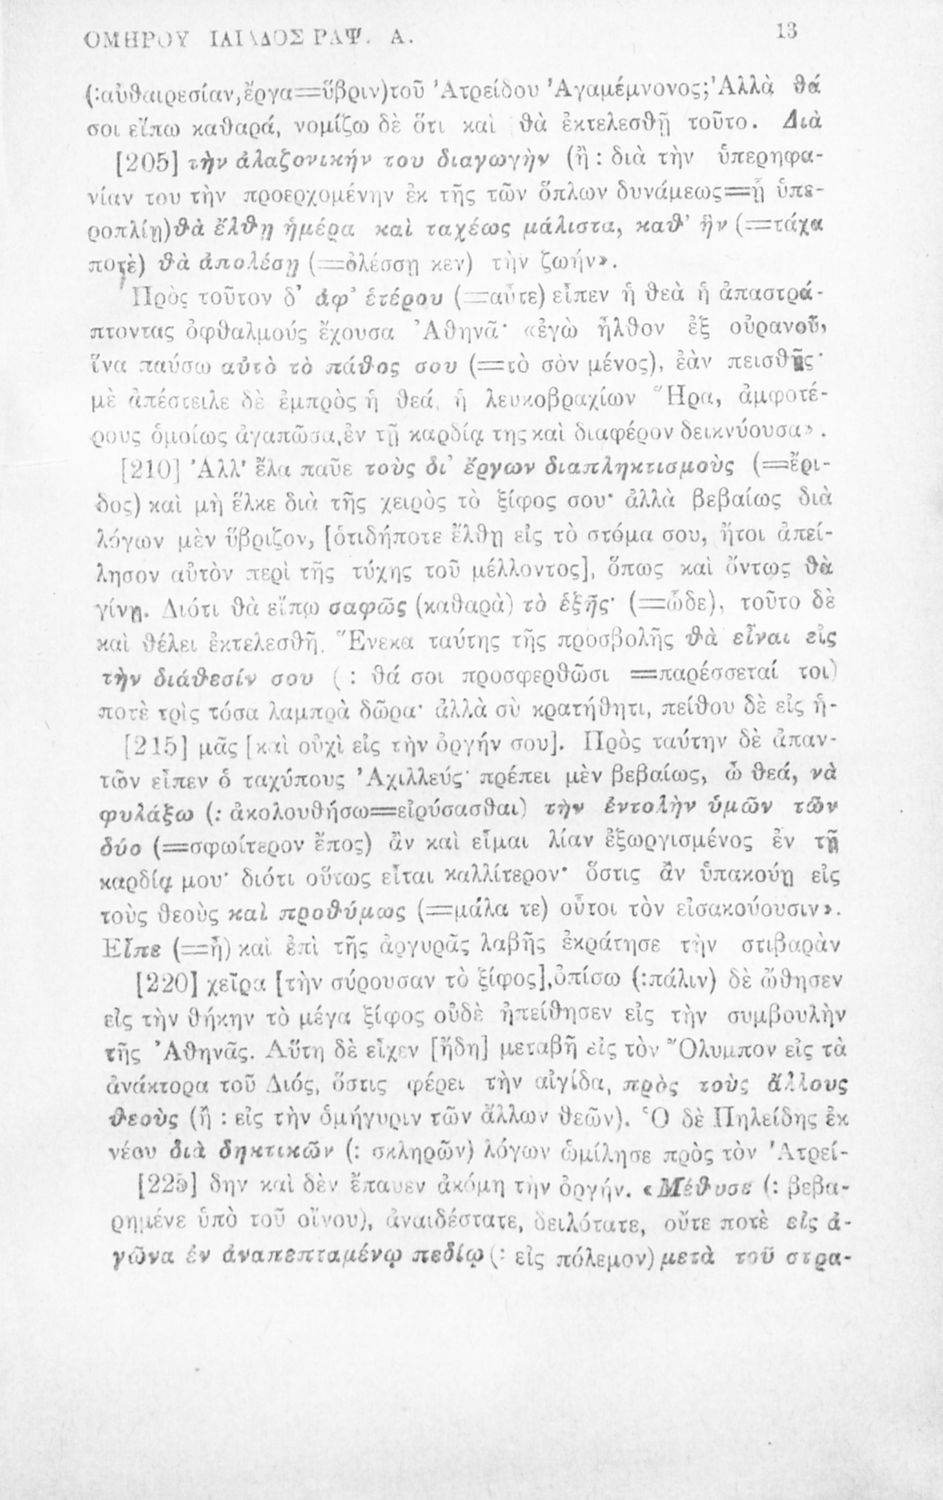 ΟΜΗΡΟΥ ΙΛΙΑΔΟΣ ΡΑΨ. Α. 13
(:αὐθαιρεσίαν,ἔργα=ὕβριν)τοῦ Ἀτρείδου Ἀγαμέμνονος;Ἀλλὰ θά
σοι εἴπω καθαρά, νομίζω δὲ ὅτι καὶ θὰ ἐκτελεσθῇ τοῦτο. Διὰ
[205] τὴν ἀλαζονικήν του διαγωγὴν (ἢ : διὰ τὴν ὑπερηφα-
νίαν του τὴν προερχομένην ἐκ τῆς τῶν ὅπλων δυνάμεως=ᾗ ὑπε-
ροπλίῃ)θὰ ἔλθῃ ἡμέρα καὶ ταχέως μάλιστα, καθ' ἣν (=τάχα
ποτὲ) θὰ ἀπολέσῃ (=ὀλέσσῃ κεν) τὴν ζωήν».
Πρὸς τοῦτον δ' ἀφ' ἑτέρου (=αὖτε) εἶπεν ἡ θεὰ ἡ ἀπαστρά-
πτοντας ὀφθαλμούς ἔχουσα Ἀθηνᾶ· «ἐγὼ ἦλθον ἐξ οὐρανοῦ,
ἵνα παύσω αὐτὸ τὸ πάθος σου (=τὸ σὸν μένος), ἐὰν πεισθῇς·
μὲ ἀπέστειλε δὲ ἐμπρὸς ἡ θεά, ἡ λευκοβραχίων Ἥρα, ἀμφοτέ-
ρους ὁμοίως ἀγαπῶσα,ἐν τῇ καρδίᾳ της καὶ διαφέρον δεικνύουσα».
[210] Ἀλλ' ἔλα παῦε τοὺς δι' ἔργων διαπληκτισμοὺς (=ἔρι-
δος) καὶ μὴ ἕλκε διὰ τῆς χειρὸς τὸ ξίφος σου· ἀλλὰ βεβαίως διὰ
λόγων μὲν ὕβριζον, [ὁτιδήποτε ἔλθῃ εἰς τὸ στόμα σου, ἤτοι ἀπεί-
λησον αὐτὸν περὶ τῆς τύχης τοῦ μέλλοντος], ὅπως καὶ ὄντως θὰ
γίνῃ. Διότι θὰ εἴπω σαφῶς (καθαρὰ) τὸ ἑξῆς· (=ὧδε), τοῦτο δὲ
καὶ θέλει ἐκτελεσθῆ. Ἕνεκα ταύτης τῆς προσβολῆς θὰ εἶναι εἰς
τὴν διάθεσίν σου ( : θά σοι προσφερθῶσι =παρέσσεταί τοι)
ποτὲ τρὶς τόσα λαμπρὰ δῶρα· ἀλλὰ σὺ κρατήθητι, πείθου δὲ εἰς ἡ-
[215] μᾶς [καὶ οὐχὶ εἰς τὴν ὀργήν σου]. Πρὸς ταύτην δὲ ἀπαν-
τῶν εἶπεν ὁ ταχύπους Ἀχιλλεύς· πρέπει μὲν βεβαίως, ὦ θεά, νὰ
φυλάξω (: ἀκολουθήσω=εἰρύσασθαι) τὴν ἐντολὴν ὑμῶν τῶν
δύο (=σφωίτερον ἔπος) ἂν καὶ εἶμαι λίαν ἐξωργισμένος ἐν τῇ
καρδίᾳ μου· διότι οὕτως εἶται καλλίτερον· ὅστις ἂν ὑπακούῃ εἰς
τοὺς θεοὺς καὶ προθύμως (=μάλα τε) οὗτοι τὸν εἰσακούουσιν».
Εἶπε (=ἦ) καὶ ἐπὶ τῆς ἀργυρᾶς λαβῆς ἐκράτησε τὴν στιβαρὰν
[220] χεῖρα [τὴν σύρουσαν τὸ ξίφος],ὀπίσω (:πάλιν) δὲ ὤθησεν
εἰς τὴν θήκην τὸ μέγα ξίφος οὐδὲ ἠπείθησεν εἰς τὴν συμβουλὴν
τῆς Ἀθηνᾶς. Αὕτη δὲ εἶχεν [ἤδη] μεταβῆ εἰς τὸν Ὄλυμπον εἰς τὰ
ἀνάκτορα τοῦ Διός, ὅστις φέρει τὴν αἰγίδα, πρὸς τοὺς ἄλλους
θεοὺς (ἢ : εἰς τὴν ὁμήγυριν τῶν ἄλλων θεῶν). Ὁ δὲ Πηλείδης ἐκ
νέου διὰ δηκτικῶν (: σκληρῶν) λόγων ὡμίλησε πρὸς τὸν Ἀτρεί-
[225] δην καὶ δὲν ἔπαυεν ἀκόμη τὴν ὀργήν. «Μέθυσε (: βεβα-
ρημένε ὑπὸ τοῦ οἴνου), ἀναιδέστατε, δειλότατε, οὔτε ποτὲ εἰς ἀ-
γῶνα ἐν ἀναπεπταμένῳ πεδίῳ (: εἰς πόλεμον) μετὰ τοῦ στρα-